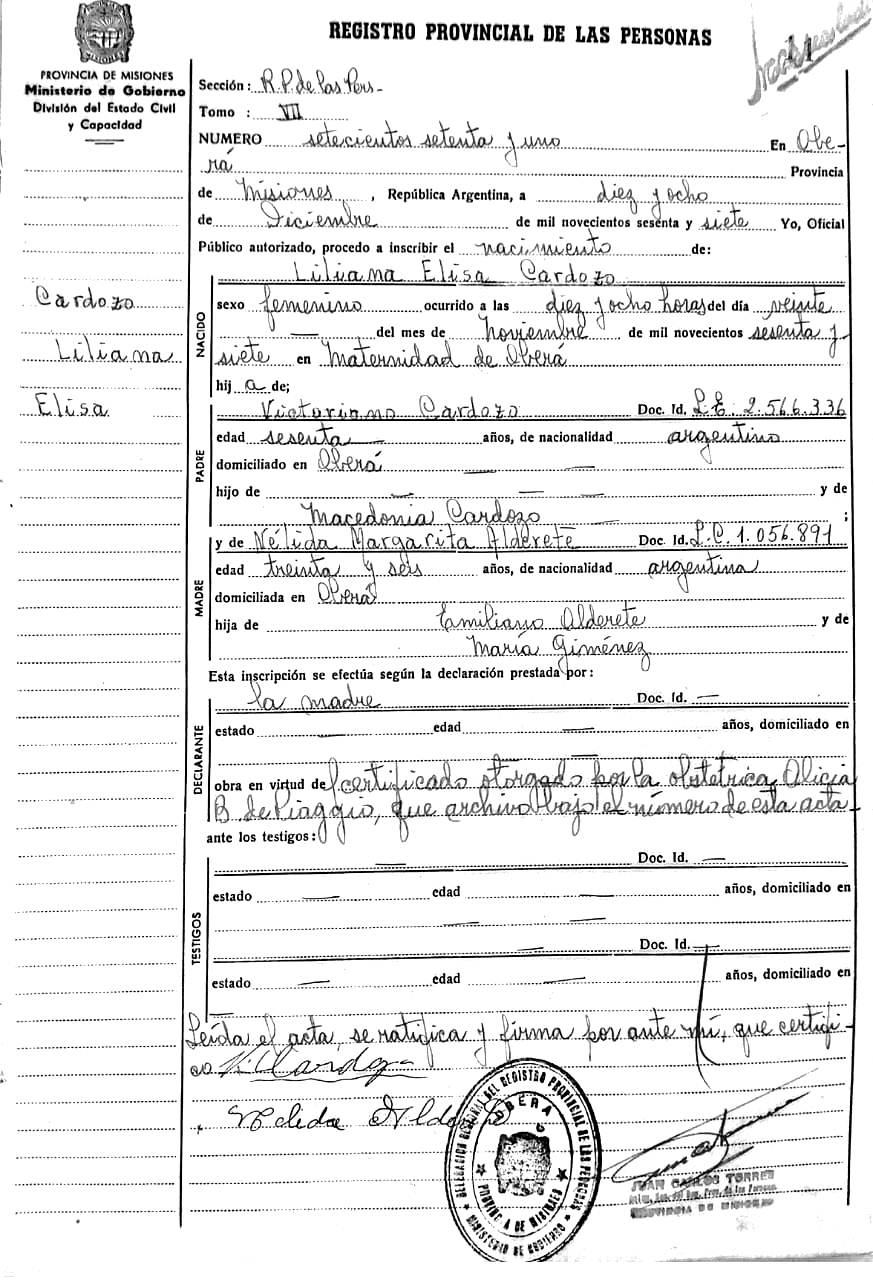 REGISTRO PROVINCIAL DE LAS PERSONAS
PROVINCIA DE MISIONES
Ministerio de Gobierno
División del Estado Civil
y Capacidad
Sección: R.P. de las Pers-
Tomo : VII
NUMERO setecientos setenta y uno En Obe-
rá Provincia
de Misiones, República Argentina, a diez y ocho
de Diciembre de mil novecientos sesenta y siete Yo, Oficial
Público autorizado, procedo a inscribir el nacimiento de:
Cardozo
Liliana
Elisa
NACIDO
Liliana Elisa Cardozo
sexo femenino ocurrido a las diez y ocho horas del día veinte
— del mes de Noviembre de mil novecientos sesenta y
siete en Maternidad de Oberá
hij a de;
PADRE
Victoriano Cardozo Doc. Id. L.E. 2.566.336
edad sesenta años, de nacionalidad argentino
domiciliado en Oberá — —
hijo de — — — y de
Macedonia Cardozo ;
MADRE
y de Nélida Margarita Alderete Doc. Id. L.C. 1.056.891
edad treinta y seis años, de nacionalidad argentina
domiciliada en Oberá
hija de Emiliano Alderete y de
María Giménez
Esta inscripción se efectúa según la declaración prestada por:
DECLARANTE
la madre Doc. Id. —
estado — edad — años, domiciliado en
obra en virtud de certificado otorgado por la obstetrica Alicia
B. de Piaggio, que archivo bajo el número de esta acta
ante los testigos:
TESTIGOS
— Doc. Id. —
estado — edad — años, domiciliado en
— —
— Doc. Id. —
estado — edad — años, domiciliado en
Leída el acta, se ratifica y firma por ante mí, que certifi-
co V. Cardozo
Nelida Alderete
DELEGACION REGIONAL DEL REGISTRO PROVINCIAL DE LAS PERSONAS
OBERA
PROVINCIA DE MISIONES
MINISTERIO DE GOBIERNO
JUAN CARLOS TORRES
PROVINCIA DE MISIONES